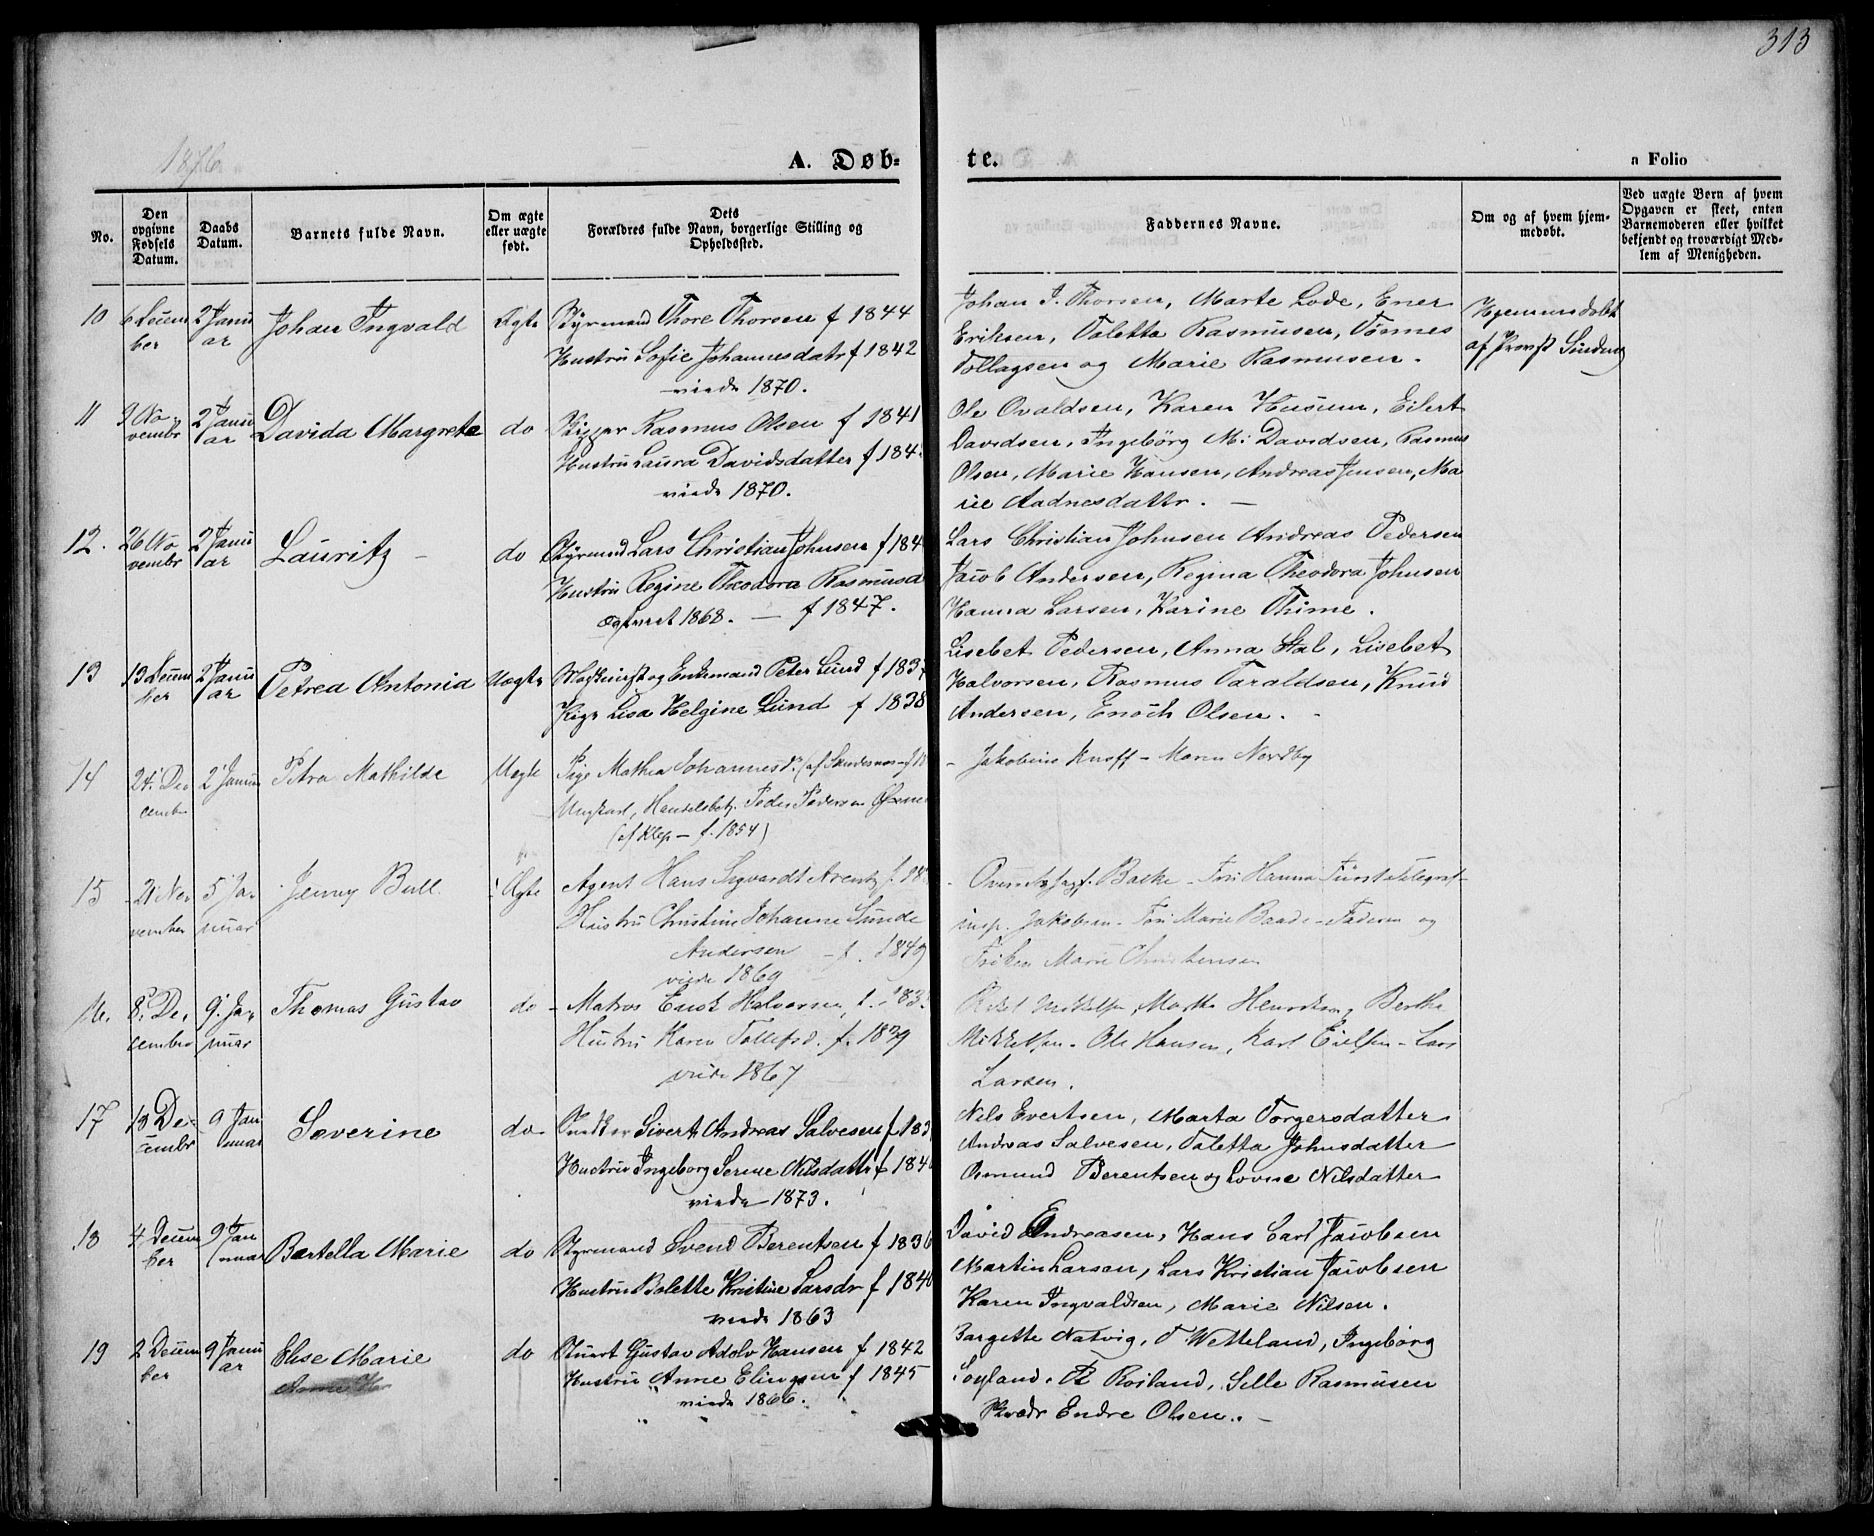 313
1876
A. Døb-
te.
n Folio
No.
Den opgivne Fødsels Datum.
Daabs Datum.
Barnets fulde Navn.
Om ægte eller uægte født.
Dets Forældres fulde Navn, borgerlige Stilling og Opholdssted.
Faddernes Navne.
Om og af hvem hjemmedøbt.
Ved uægte Børn af hvem Opgaven er skeet, enten Barnemoderen eller hvilket bekjendt og troværdigt Medlem af Menigheden.
10
6 Decem
ber
2 Janu
ar
Johan Ingvald
Ægte
Styrmand Thore Thorsen f 1844
Hustru Sofie Johannesdatr f 1842
viede 1870.
Johan T. Thorsen, Marte Lode, Ener
Eriksen, Taletta Rasmusen, Tønnes
Tollagsen og Marie Rasmusen.
Hjemmedøbt
af Provst Sinding
11
9 No
vembr
2 Janu
ar
Davida Margrete
do
Skipper Rasmus Olsen f 1841
Hustru Laura Davidsdatter f 184
viede 1870.
Ole Ovaldsen, Karen Husum, Eilert
Davidsen, Ingebørg M: Davidsen, Rasmus
Olsen, Marie Hansen, Andreas Jensen, Ma
rie Aadnesdattr. —
12.
26 No
vembr
2 Janu
ar
Lauritz —
do
Styrmand Lars Christian Johnsen f 184
Hustru Regine Theodora Rasmusd
Ægteviet 1868. — f 1847.
Lars Christian Johnsen Andreas Pedersen
Jacob Andersen, Regina Theodora Johnsen
Hanna Larsen, Karine Thime.
13
13 Decem
ber
2 Janu
ar
Petrea Antonia
Uægte
Maskinist og Enkemand Peter Lund f 183
Pige Lisa Helgine Lund f 1838
Lisebet Pedersen, Anna Stal, Lisebet
Halvorsen, Rasmus Taraldsen, Knud
Andersen, Enoch Olsen.
14
24 De
cember
2 Januar
Petra Mathilde
Uægte
Pige Mathea Johannesd. (af Sandesnes - f.
Ungkarl, Handelsbetj. Peder Pedersen
(af Klep — f. 1854)
- Jakobine Knoff - Maren Nordby
15
21 No
vember
5 Ja
nuar
Jenny Bull
Ægte
Agent Hans Sigvardt Arentz f. 18
Hustru Christine Johanne Sunde
Andersen — f. 1849
viede 1869
Balke - Frk Hanna Telegraf-
insp. Jakobsen - Frk Marie Baade - Faderen og
Frøken Marie Christensen
16.
8. De
cember
9. Ja
nuar
Thomas Gustav
do
Matros Enok Halvorsen, f. 183
Hustru Karen Tollefsd. f. 1839
viede 1867
Mikkelsen, Martha Henriksen, Bertha
Mikkelsen - Ole Hansen, Karl Eielsen - Lars
Larsen.
17
13 De-
cembr
9 Jan
nuar
Severine
do
Snedker Sivert Andreas Salvesen f 183
Hustru Ingeborg Serine Nilsdattr f 184
viede 1873.
Nils Evertsen, Marta Torgersdatter
Andreas Salvesen, Taletta Johnsdatter
Osmund Berentsen og Lovise Nilsdatter
18
4 Decem
ber
9 Jan
nuar
Bertella Marie
do
Styrmand Svend Berentsen f 1836
Hustru Bolette Kristine Larsdr f 1840
viede 1863
David Endreasen, Hans Carl Jacobsen
Martin Larsen, Lars Kristian Jacobsen
Karen Ingvaldsen, Marie Nilsen.
19
2 Decem
ber
9 Janu
ar
Elise Marie
do
Stuert Gustav Adolv Hansen f 1842
Hustru Anne Elingsen f 1845
viede 1866.
Bargette Natvig, T Wetteland, Ingebørg
Søyland, B Roiland, Sille Rasmusen
Endre Olsen. —